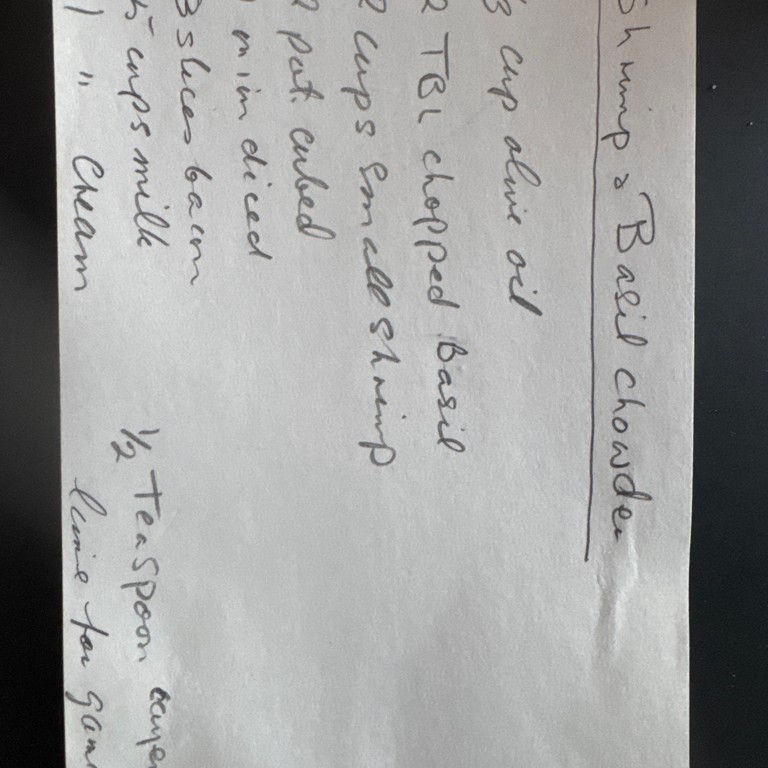 Shrimp & Basil chowder
3 cup olive oil
2 TBL chopped Basil
2 cups small shrimp
2 pot. cubed
min diced
3 slices bacon
5 cups milk
1 " Cream
1/2 Teaspoon
lime for